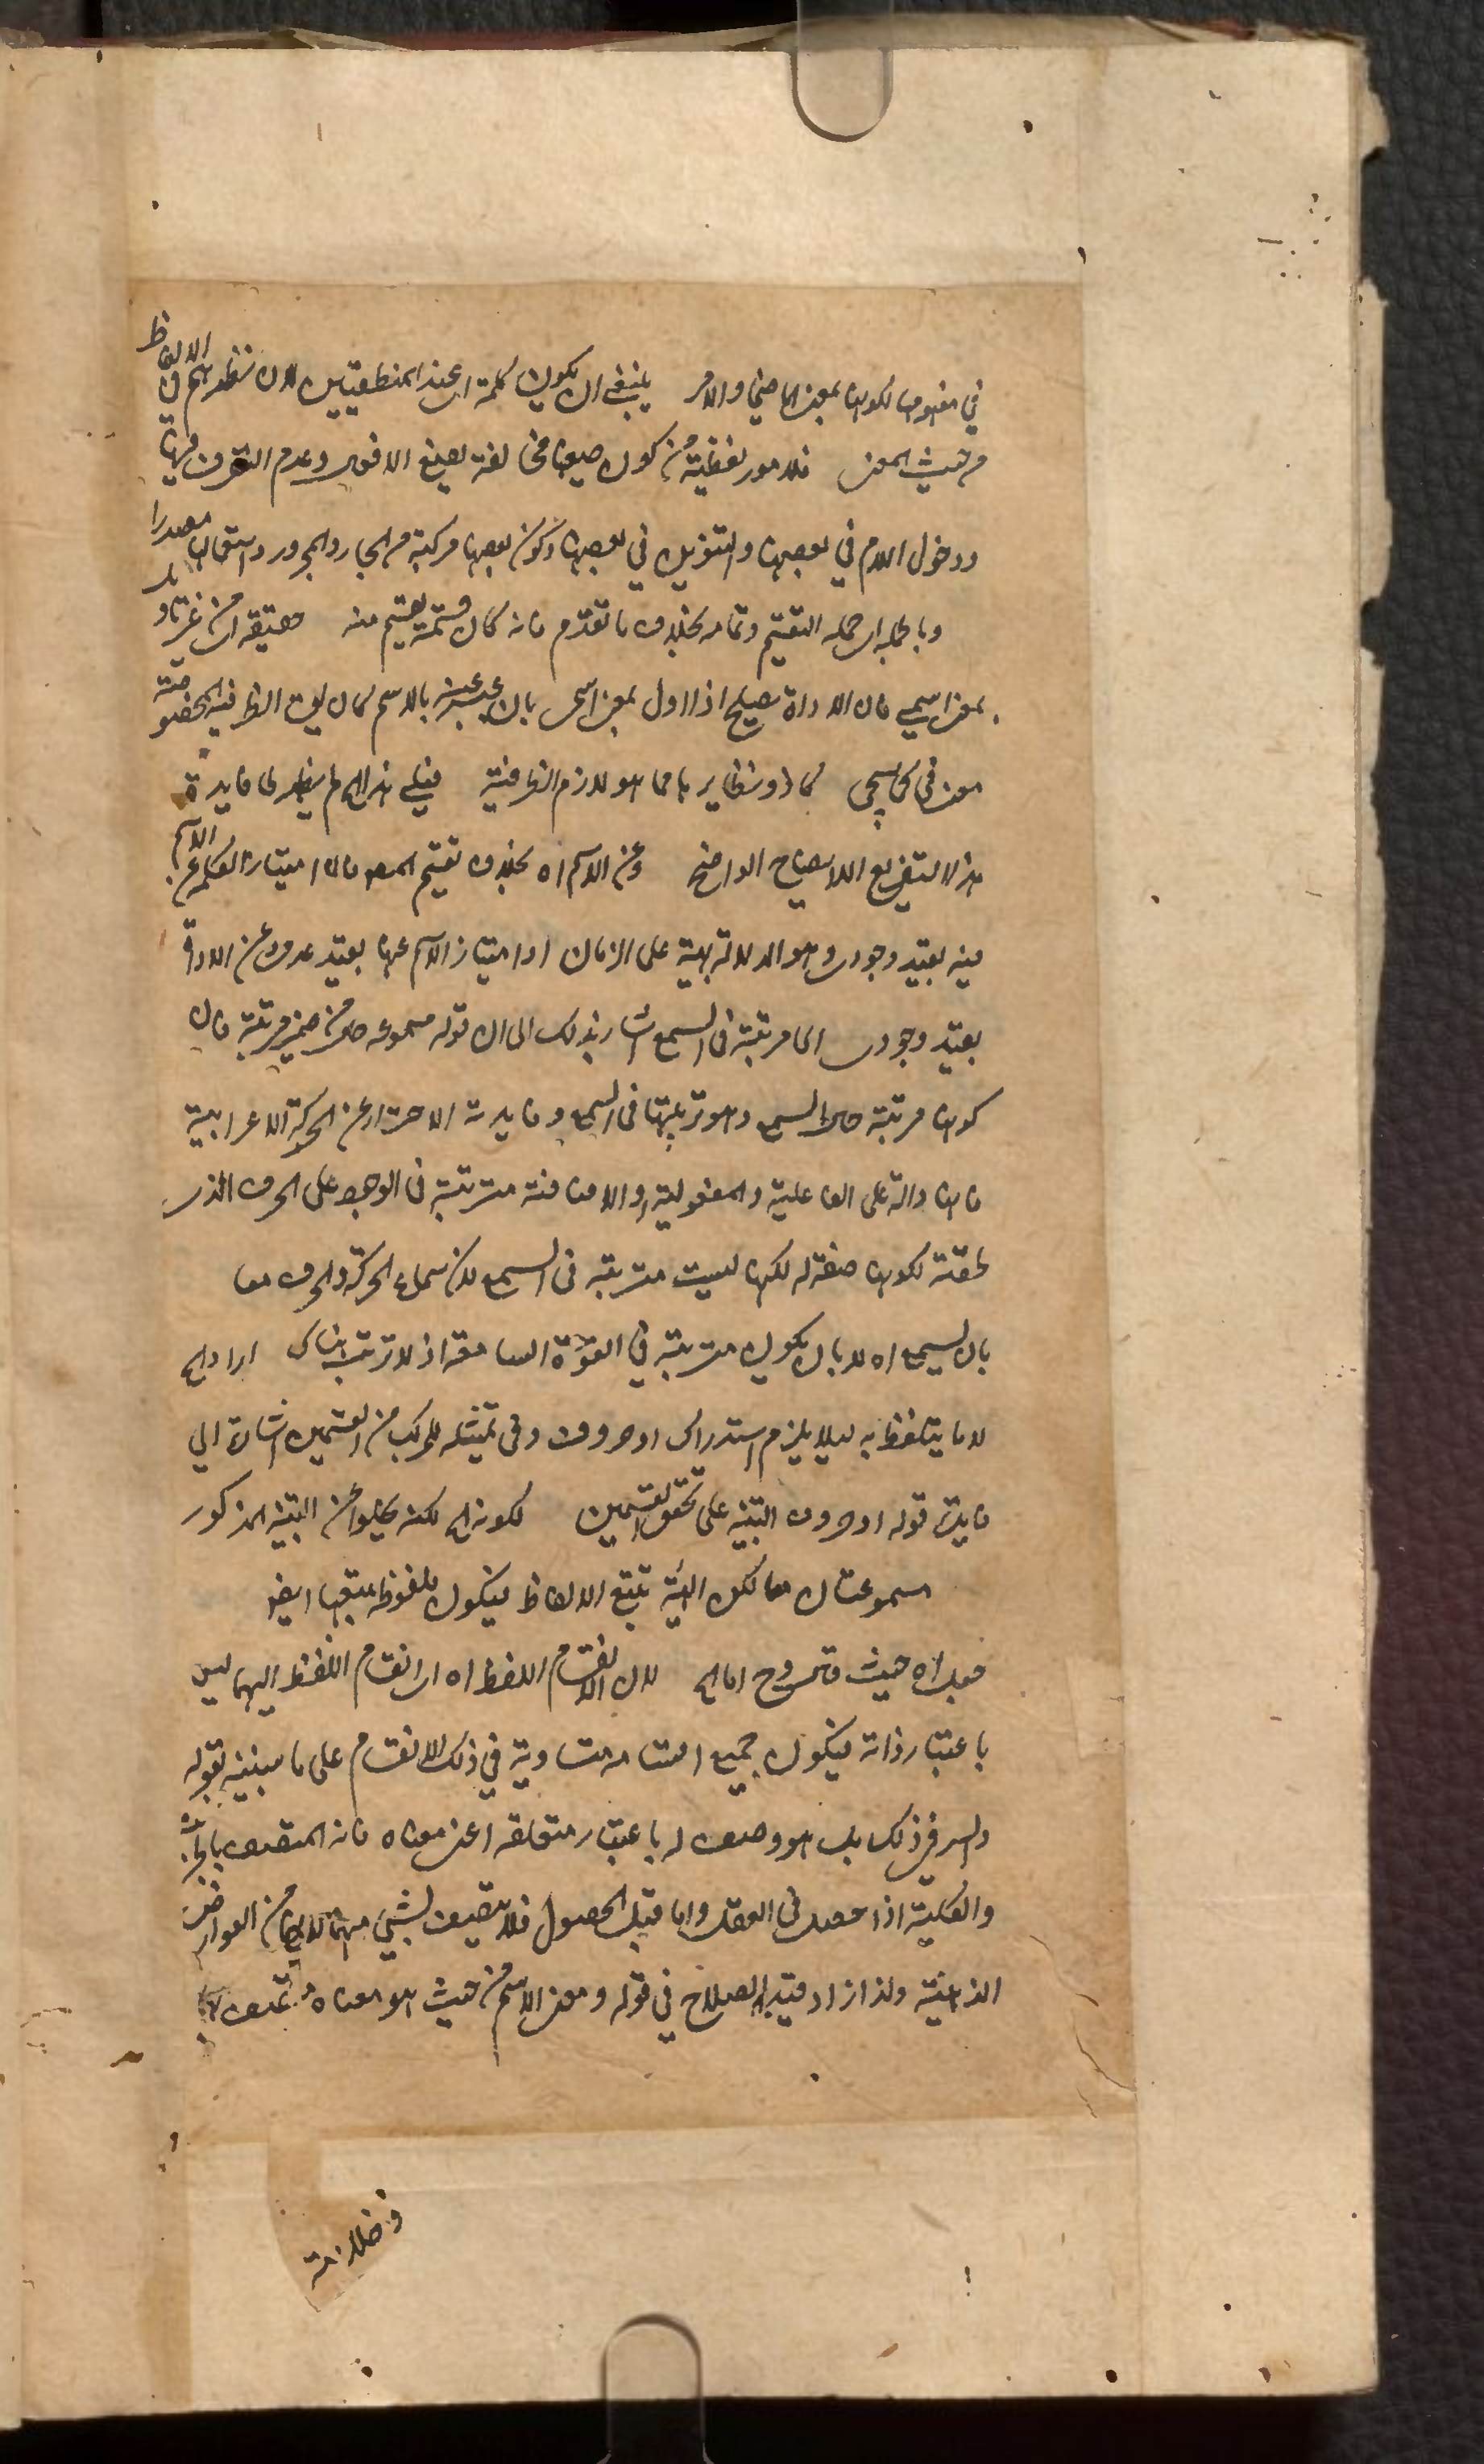 في مفهومها لكونها بمعنى الماضي والامر ينبغي ان يكون كلمة اى عند المنطقيين لان نظرهم في الالفاظ
من حيث المعنى فلامور لفظية من كون صيغها مخالفة لصيغ الافعال وعدم التصرف فيها
ودخول اللام في بعضها والتنوين في بعضها وكون بعضها مركبة من الجار والمجرور واستعمال مصدرا
وبالجملة اى جملة التقسيم وتمامه بخلاف ما تقدم فانه كان قسمة تقسيم منه حقيقة اى من غير تاويل
بمعنى اسمي فان الاداة تصلح اذا اول بمعنى اسمى بان عبر عنه بالاسم كان يقال الظرفية المخصوصة
معنى في كما سيجى كما ذو ونظايرها مما هو لازم الظرفية فعلى هذا لم يظهر لها فايدة
هذا التفريع الايضاح الواضح وعن الاسم اه بخلاف تقسيم المص فان امتياز الكلمة عن الاسم
فيه بقيد وجودى وهو الدلالة بهيئة على الزمان او امتياز الاسم عنها بقيد عدمى وعن الاداة
بقيد وجودى اى مرتبة في السمع اشار بذلك الى ان قوله مسموعة حال من ضمير مرتبة فان
كونها مرتبة حال السمع وهو ترتبها في السمع وفايدته الاحتراز عن الحركة الاعرابية
فانها دالة على الفاعلية والمفعولية والاضافة مترتبة في الوجود على الحرف الذى
لحقته لكونها صفة له لكنها ليست مترتبة في السمع لان سماع الحركة والحرف معا
بان يسمع اه لا بان يكون مترتبة في القوة السامعة اذ لا ترتب هناك اراد به
لا ما يتلفظ به ليلا يلزم استدراك او حروف وفي تمثيله للمركب من القسمين اشارة الى
فايدة قوله او حروف التنبيه على تحقق القسمين لكونه الخ لكنه يخلو عن التنبيه المذكور
مسموعتان معا لكن الهيئة تتبع الالفاظ فيكون ملفوظة بتبعها ايضا
فعل اه حيث قال وح اما الخ لان الانقسام اللفظ اه اى انقسام اللفظ اليهما ليس
باعتبار ذاته فيكون جميع اقسامه متساوية في ذلك الانقسام على ما سيبينه بقوله
والسر في ذلك بل هو وصف له باعتبار متعلقه اعنى معناه فانه المتصف بالجزئية
والكلية اذا حصل في العقل واما قبل الحصول فلا يتصف بشيء منهما لانهما من العوارض
الذهنية ولذا زاد قيد الصلاح في قوله ومعنى الاسم من حيث هو معناه